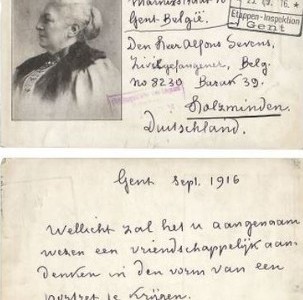 Gent-België.
22. IX. 16.*
Etappen-Inspektion
Gent
Den Heer Alfons Sevens,
Zivilgefangener, Belg.
No 8239 Barak 39.
Holzminden.
Duitschland.
Gent Sept. 1916
Wellicht zal het u aangenaam
wezen een vriendschappelijk aan-
denken in den vorm van een
portret te krijgen.